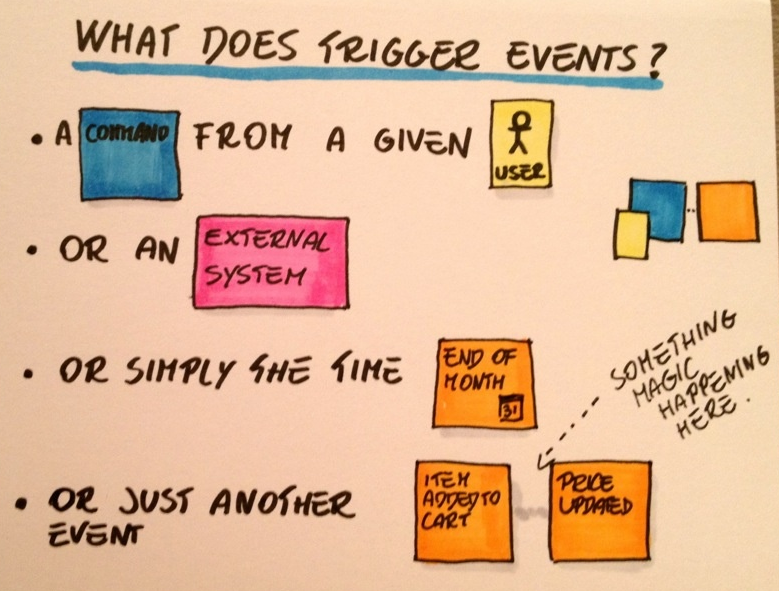 WHAT DOES TRIGGER EVENTS?
• A COMMAND FROM A GIVEN USER
• OR AN EXTERNAL
SYSTEM
• OR SIMPLY THE TIME
END OF
MONTH
31
SOMETHING
MAGIC
HAPPENING
HERE.
• OR JUST ANOTHER
EVENT
ITEM
ADDED TO
CART
PRICE
UPDATED